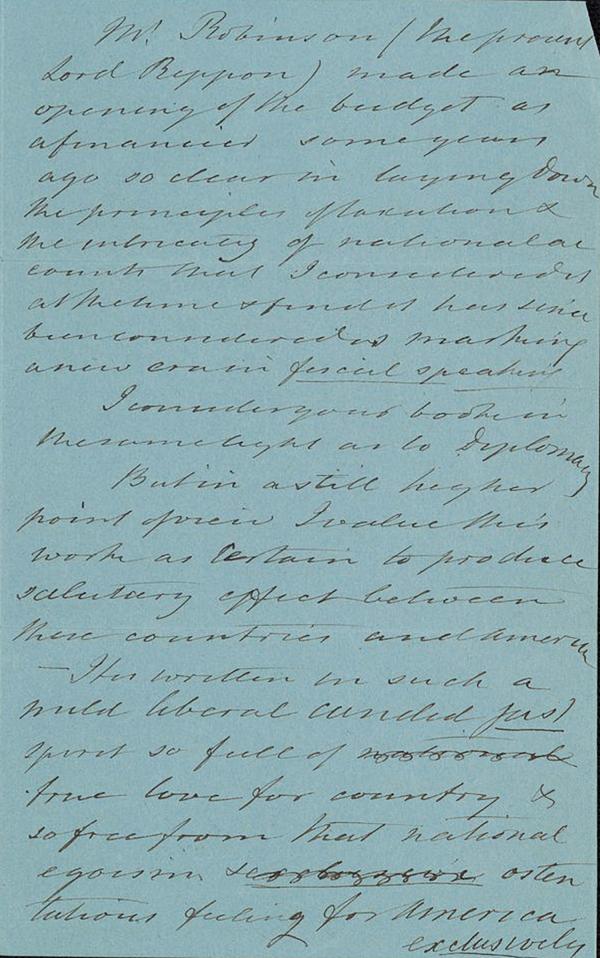 Mr. Robinson (the present
Lord Reppon) made an
opening of the budget as
a financier some years
ago so clear in laying down
the principles of taxation &
the intricacies of national ac
counts that I considered it
at the time & find it has since
been considered as marking
a new era in fiscial speaking
I consider your book in
the same light as to Diplomacy
But in a still higher
point of view I value this
work as certain to produce
salutary effect between
these countries and America
— It is written in such a
mild liberal candid just
spirit so full of national
true love for country &
so free from that national
egoism & osten
tatious feeling for America
exclusively